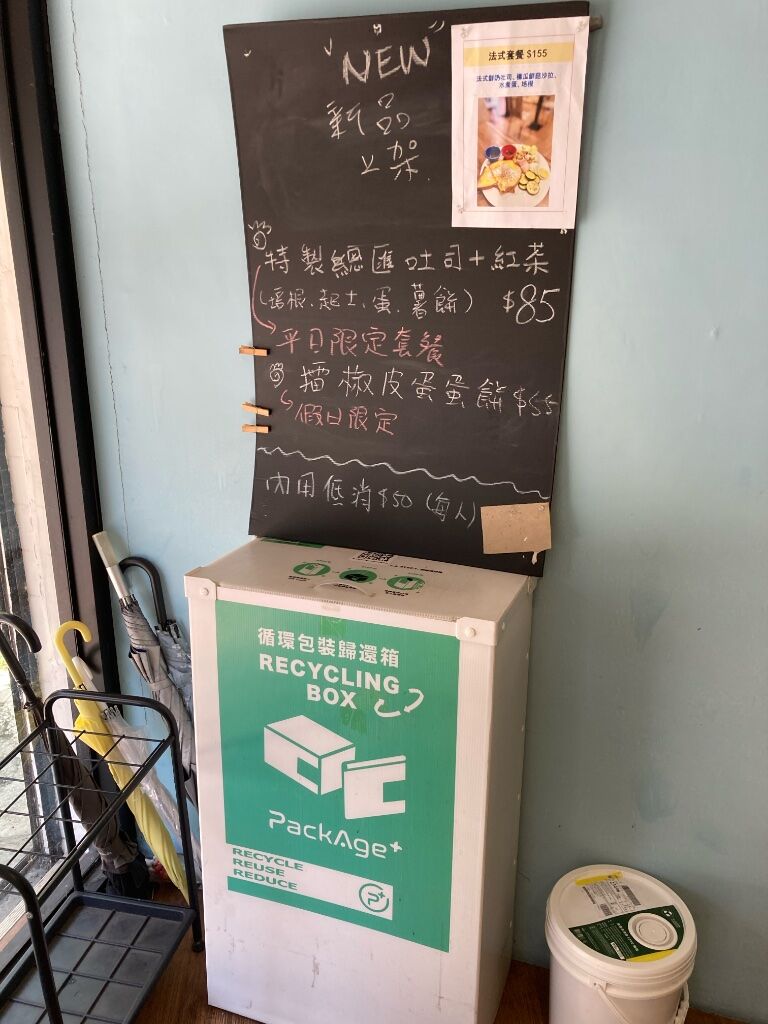 "NEW"
新品
上架
法式套餐 $155
法式鮮奶吐司、
水煮蛋、培根
特製總匯吐司+紅茶
(培根、起士、蛋、薯餅) $85
平日限定套餐
擂椒皮蛋蛋餅 $55
假日限定
內用低消$50 (每人)
循環包裝歸還箱
RECYCLING
BOX
PackAge+
RECYCLE
REUSE
REDUCE
P+